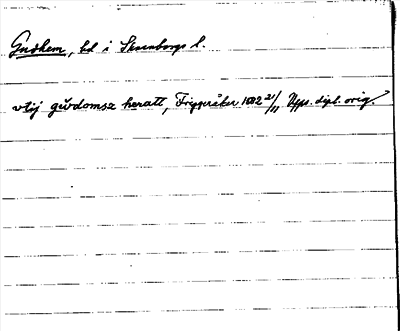 Gudhem, hd i Skaraborgs l.
vtij gùdomsz heratt, Friggeråker 1602 21/11 Upps. dipl. orig.